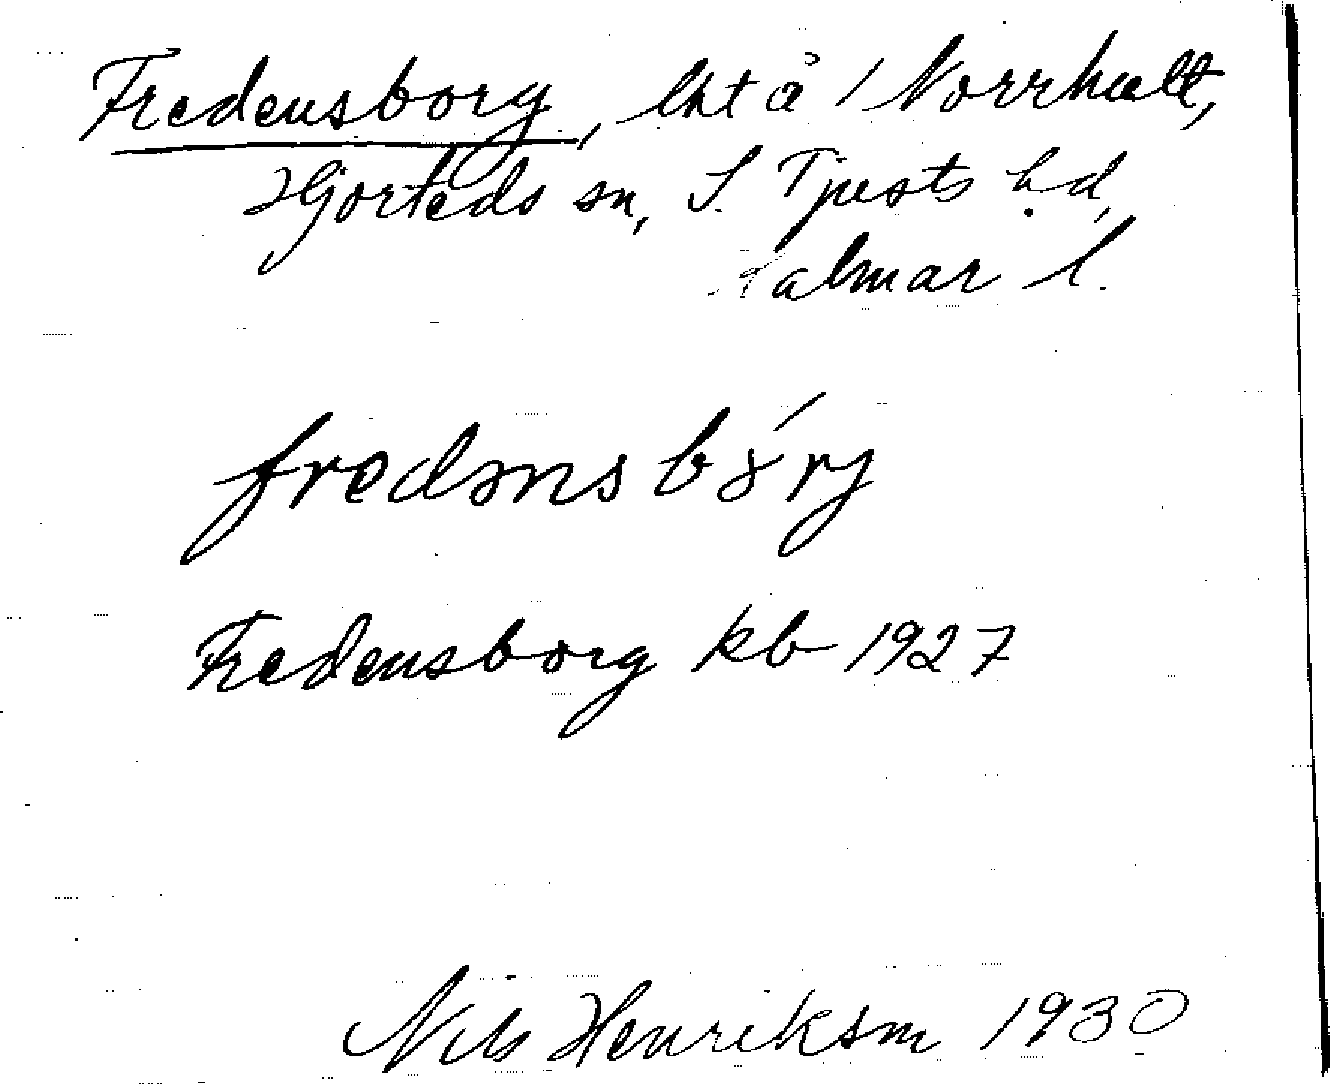 Fredensborg, lht å 1 Norrhult,
Hjorteds sn, S. Tjusts hd,
Kalmar l.
fredənsbórj
Fredensborg kb 1927
Nils Henrikson 1930